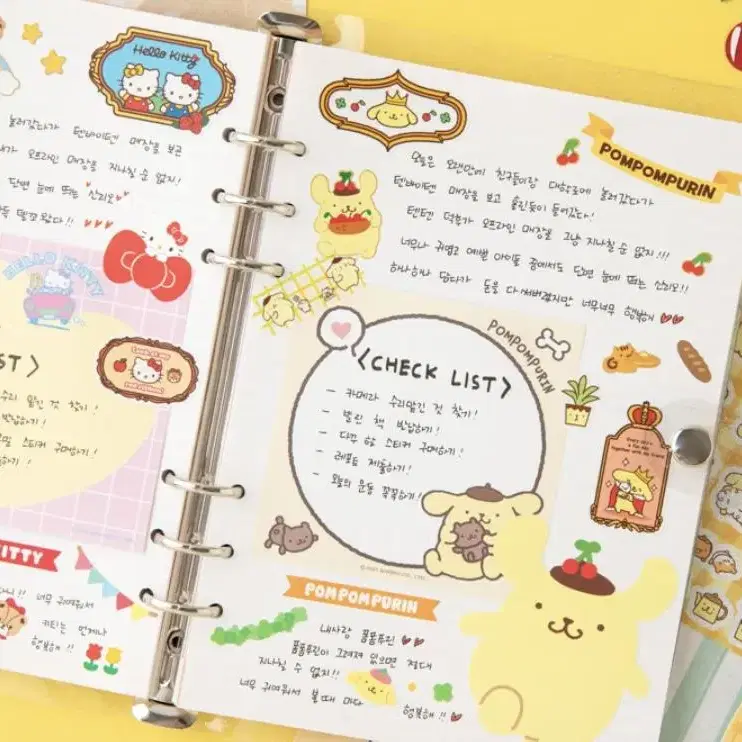 Hello Kitty
놀러갔다가 텐바이텐 매장을 보곤
오프라인 매장을 지나칠 수 없지!
단편 눈에 띄는 산리오♥
HELLO KITTY
LIST>
수리 맡긴 것 찾기!
반납하기!
스티커 구매하기!
하기!
KITTY
너무 귀여워서
키티는 언제나
행복해!!
POMPOMPURIN
오늘은 오랜만에 친구들이랑 대학로에 놀러갔다가
텐바이텐 매장을 보고 홀린듯이 들어갔다!
텐텐 덕후가 오프라인 매장을 그냥 지나칠 수 없지!!!
너무나 귀엽고 예쁜 아이들 중에서도 단연 눈에 띄는 산리오!!
하나하나 담다가 돈을 다써버렸지만 너무너무 행복해 ♥♥
POMPOMPURIN
<CHECK LIST>
- 카메라 수리맡긴 것 찾기!
- 빌린 책 반납하기!
- 다꾸 할 스티커 구매하기!
- 레포트 제출하기!
- 오늘의 운동 꼭꼭하기!
POMPOMPURIN
내사랑 폼폼푸린 ♥♥
폼폼푸린이 그려져 있으면 절대
지나칠 수 없지!!
너무 귀여워서 볼때 마다 행복해!! ♥